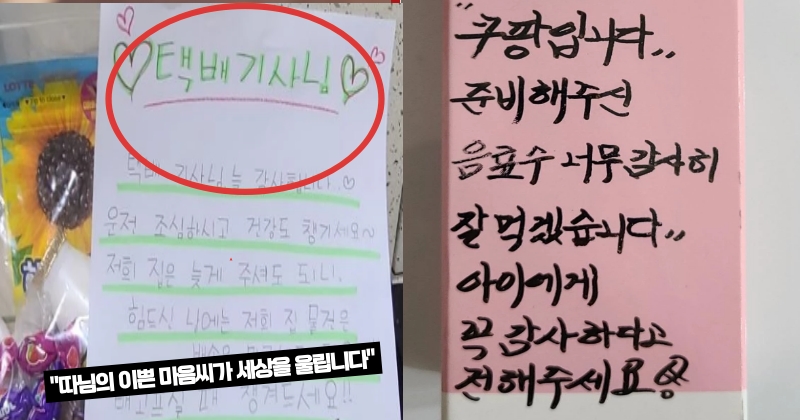 LOTTE
택배기사님
택배 기사님 늘 감사합니다.♡
운전 조심하시고 건강도 챙기세요~
저희 집은 늦게 주셔도 되니.
힘드신 날에는 저희 집 물건은
배고프실 때 챙겨드세요!!
"따님의 이쁜 마음씨가 세상을 울립니다"
"쿠팡입니다,,
준비해주신
음료수 너무 감사히
잘 먹겠습니다,,
아이에게
꼭 감사하다고
전해주세요